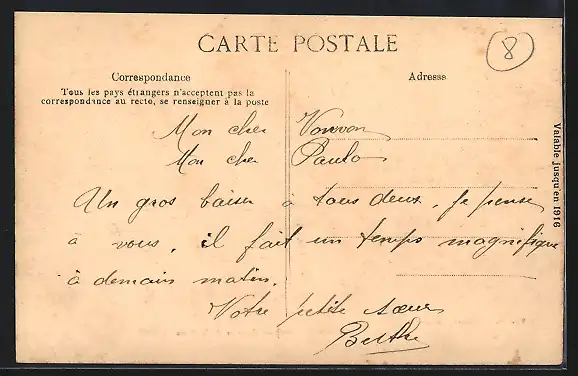 CARTE POSTALE
8
Correspondance
Adresse
Tous les pays étrangers n'acceptent pas la
correspondance au recto, se renseigner à la poste
Valable jusqu'en 1916
Mon cher Vonvon
Mon cher Paulo
Un gros baiser à tous deux. Je pense
à vous, il fait un temps magnifique
à demain matin.
Votre petite sœur
Berthe